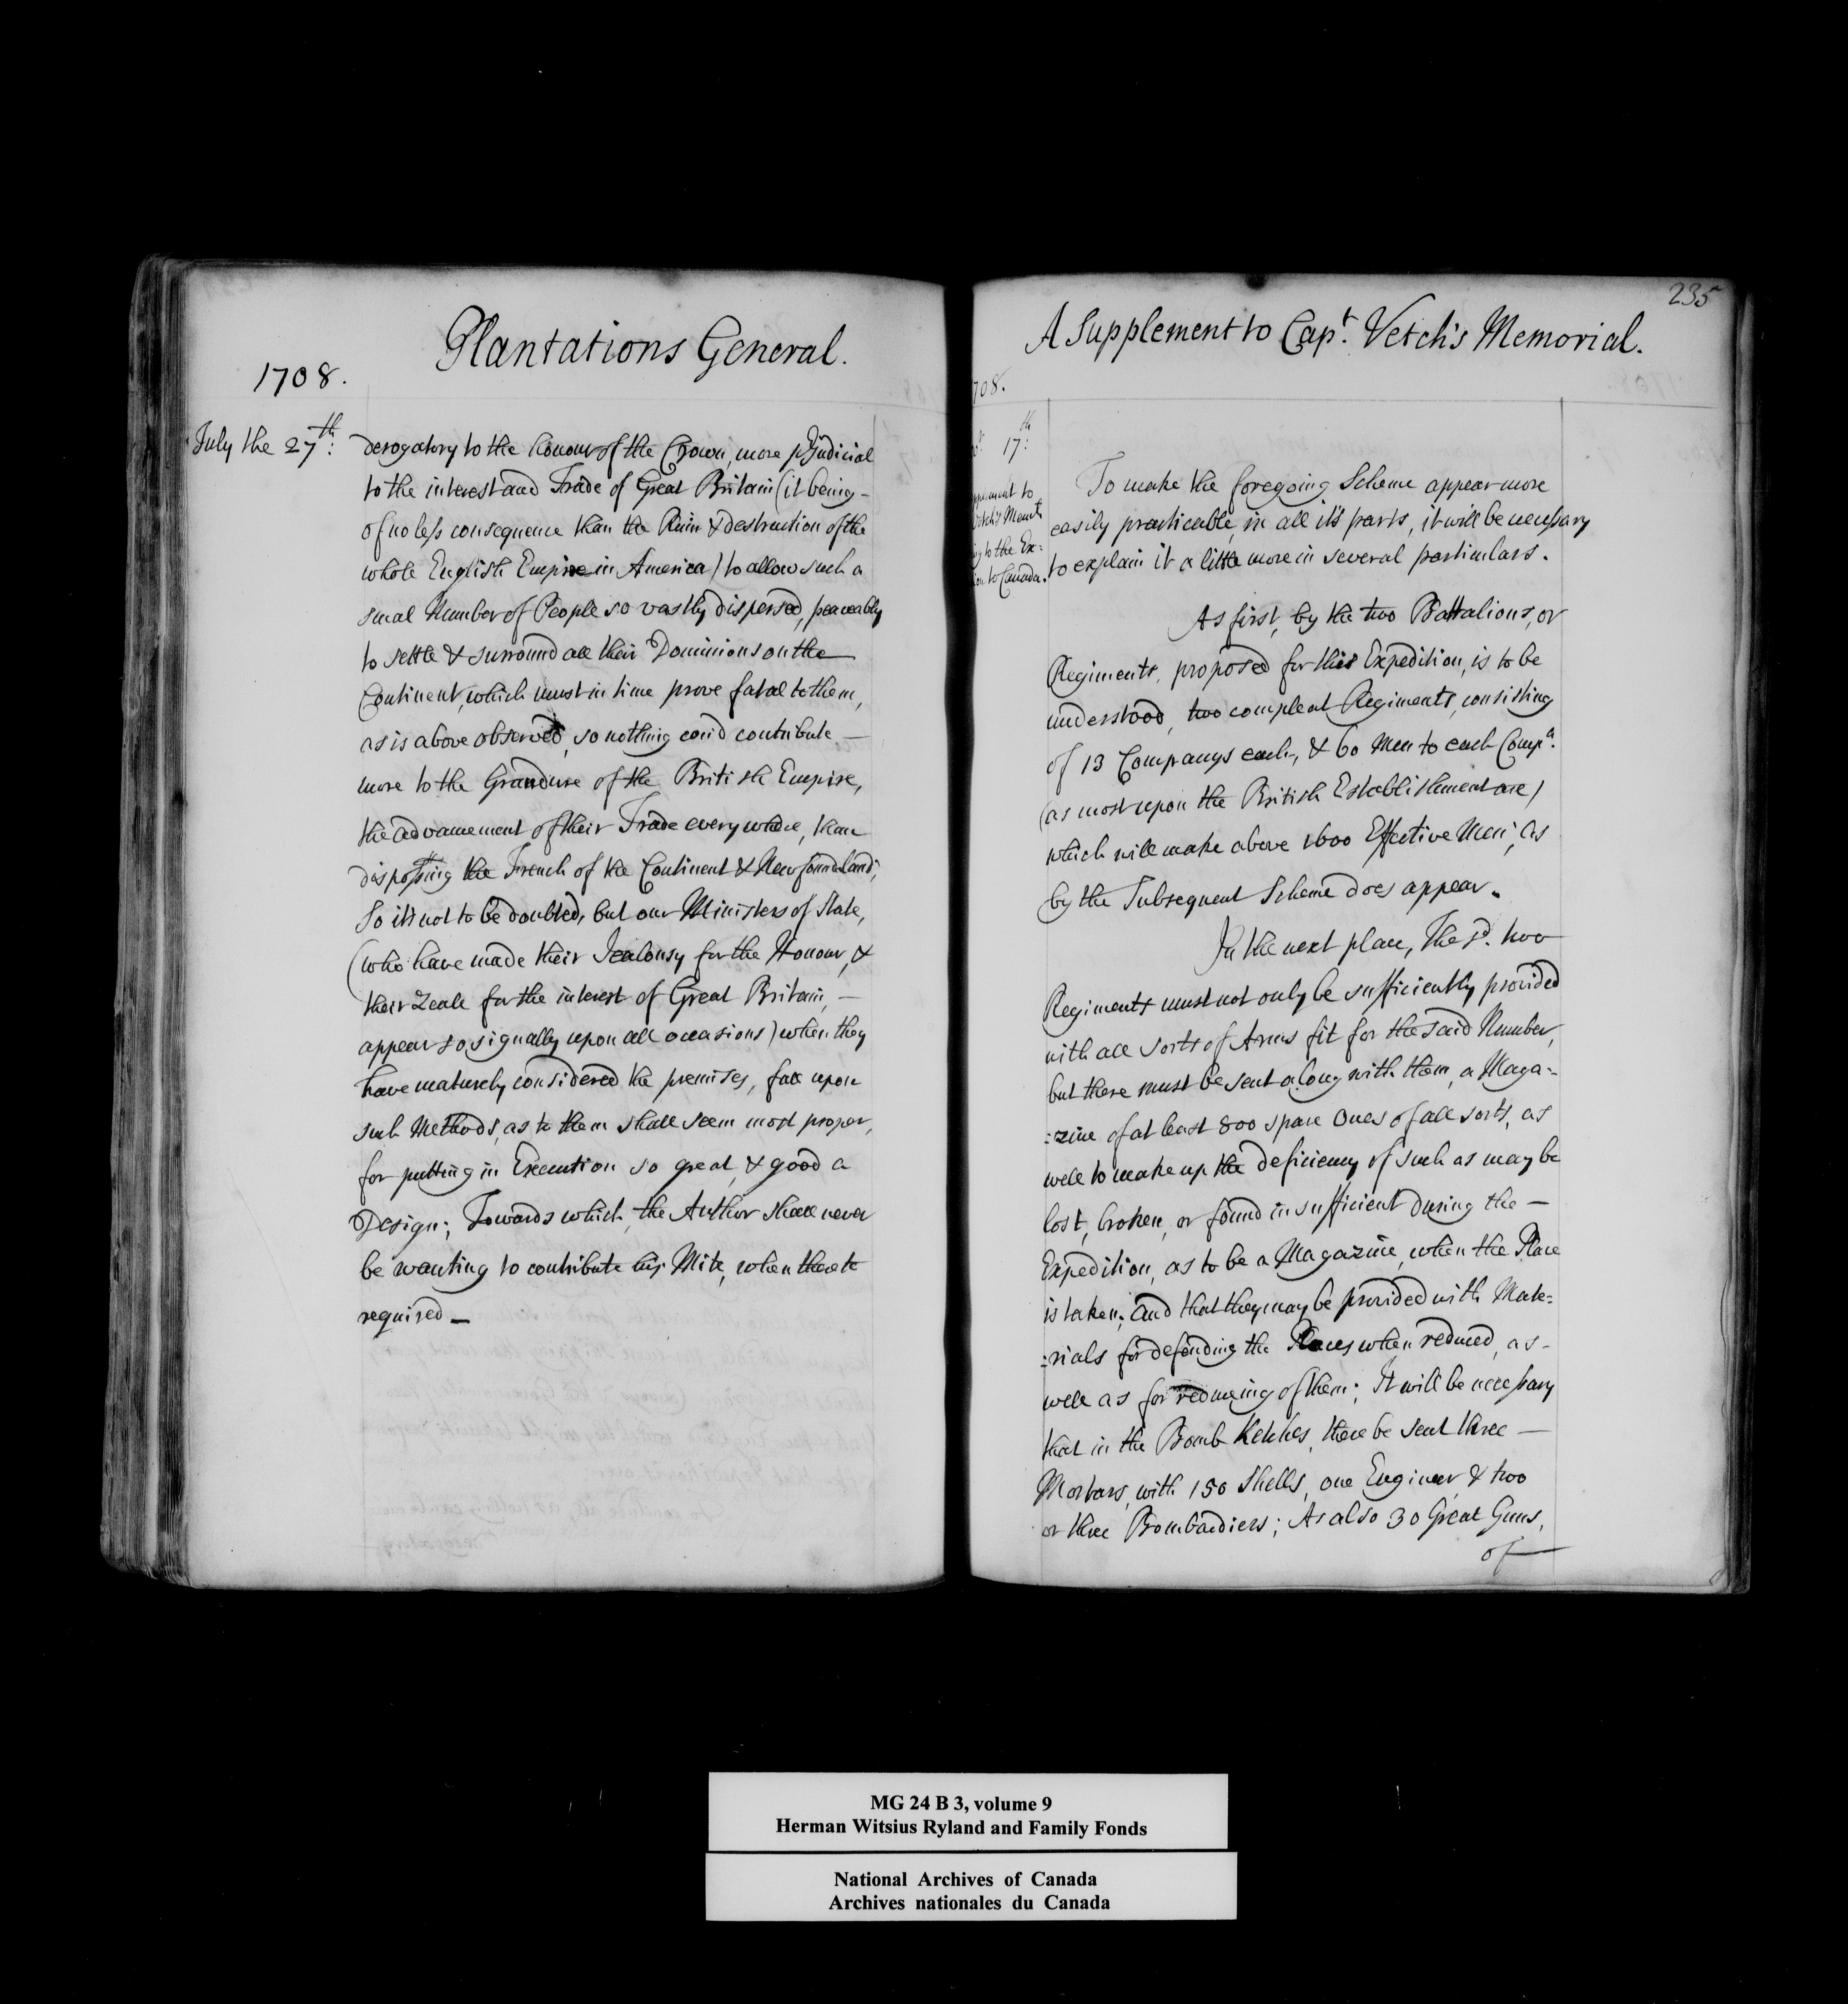 Plantations General.
1708.
July the 27th:
derogatory to the honour of the Crown, more prjudicial
to the interest and Trade of Great Britain (it being -
of no less consequence than the Ruin & destruction of the
whole English Empire in America) to allow such a
smal Number of People so vastly dispersed, peaceably
to settle & surround all their Dominions on the
Continent, which must in time prove fatal to them,
as is above observed, so nothing cou'd contribute —
more to the Grandure of the British Empire,
the advancement of their Trade every where, than
dispossessing the French of the Continent & Newfoundland;
So it's not to be doubted, but our Ministers of State,
(who have made their Jealousy for the Honour, &
their Zeale for the interest of Great Britain, —
appear so signally upon all occasions) when they
have maturely considered the premises, fall upon
such Methods, as to them shall seem most proper,
for putting in Execution so great, & good a
Design; Towards which, the Author shall never
be wanting to contribute his Mite, when thereto
required —
235
A Supplement to Capt. Vetch's Memorial.
708.
17th:
to
Vetch's Meml.
to the Ex:
to Canada.
To make the foregoing Scheme appear more
easily practicable, in all it's parts, it will be necessary
to explain it a little more in several particulars.
As first, by the two Battalions, or
Regiments, proposed for this Expedition, is to be
understood, two compleat Regiments, consisting
of 13 Companys each, & 60 Men to each Compa.
(as most upon the British Establishment are)
which will make above 1600 Effective Men; as
by the Subsequent Scheme does appear.
In the next place, The sd. two
Regiments must not only be sufficiently provided
with all sorts of Arms fit for the said Number,
but there must be sent along with them, a Maga=
=zine of at least 800 spare Ones of all sorts, as
well to make up the deficiency of such as may be
lost, broken, or found insufficient during the —
Expedition, as to be a Magazine, when the Place
is taken; And that they may be provided with Mate=
=rials for defending the Places when reduced, as -
well as for reduceing of them; It will be necessary
that in the Bomb Ketches, there be sent three —
Mortars, with 150 Shells, one Engineer, & two
or three Bombardiers; As also 30 Great Guns,
of —
MG 24 B 3, volume 9
Herman Witsius Ryland and Family Fonds
National Archives of Canada
Archives nationales du Canada